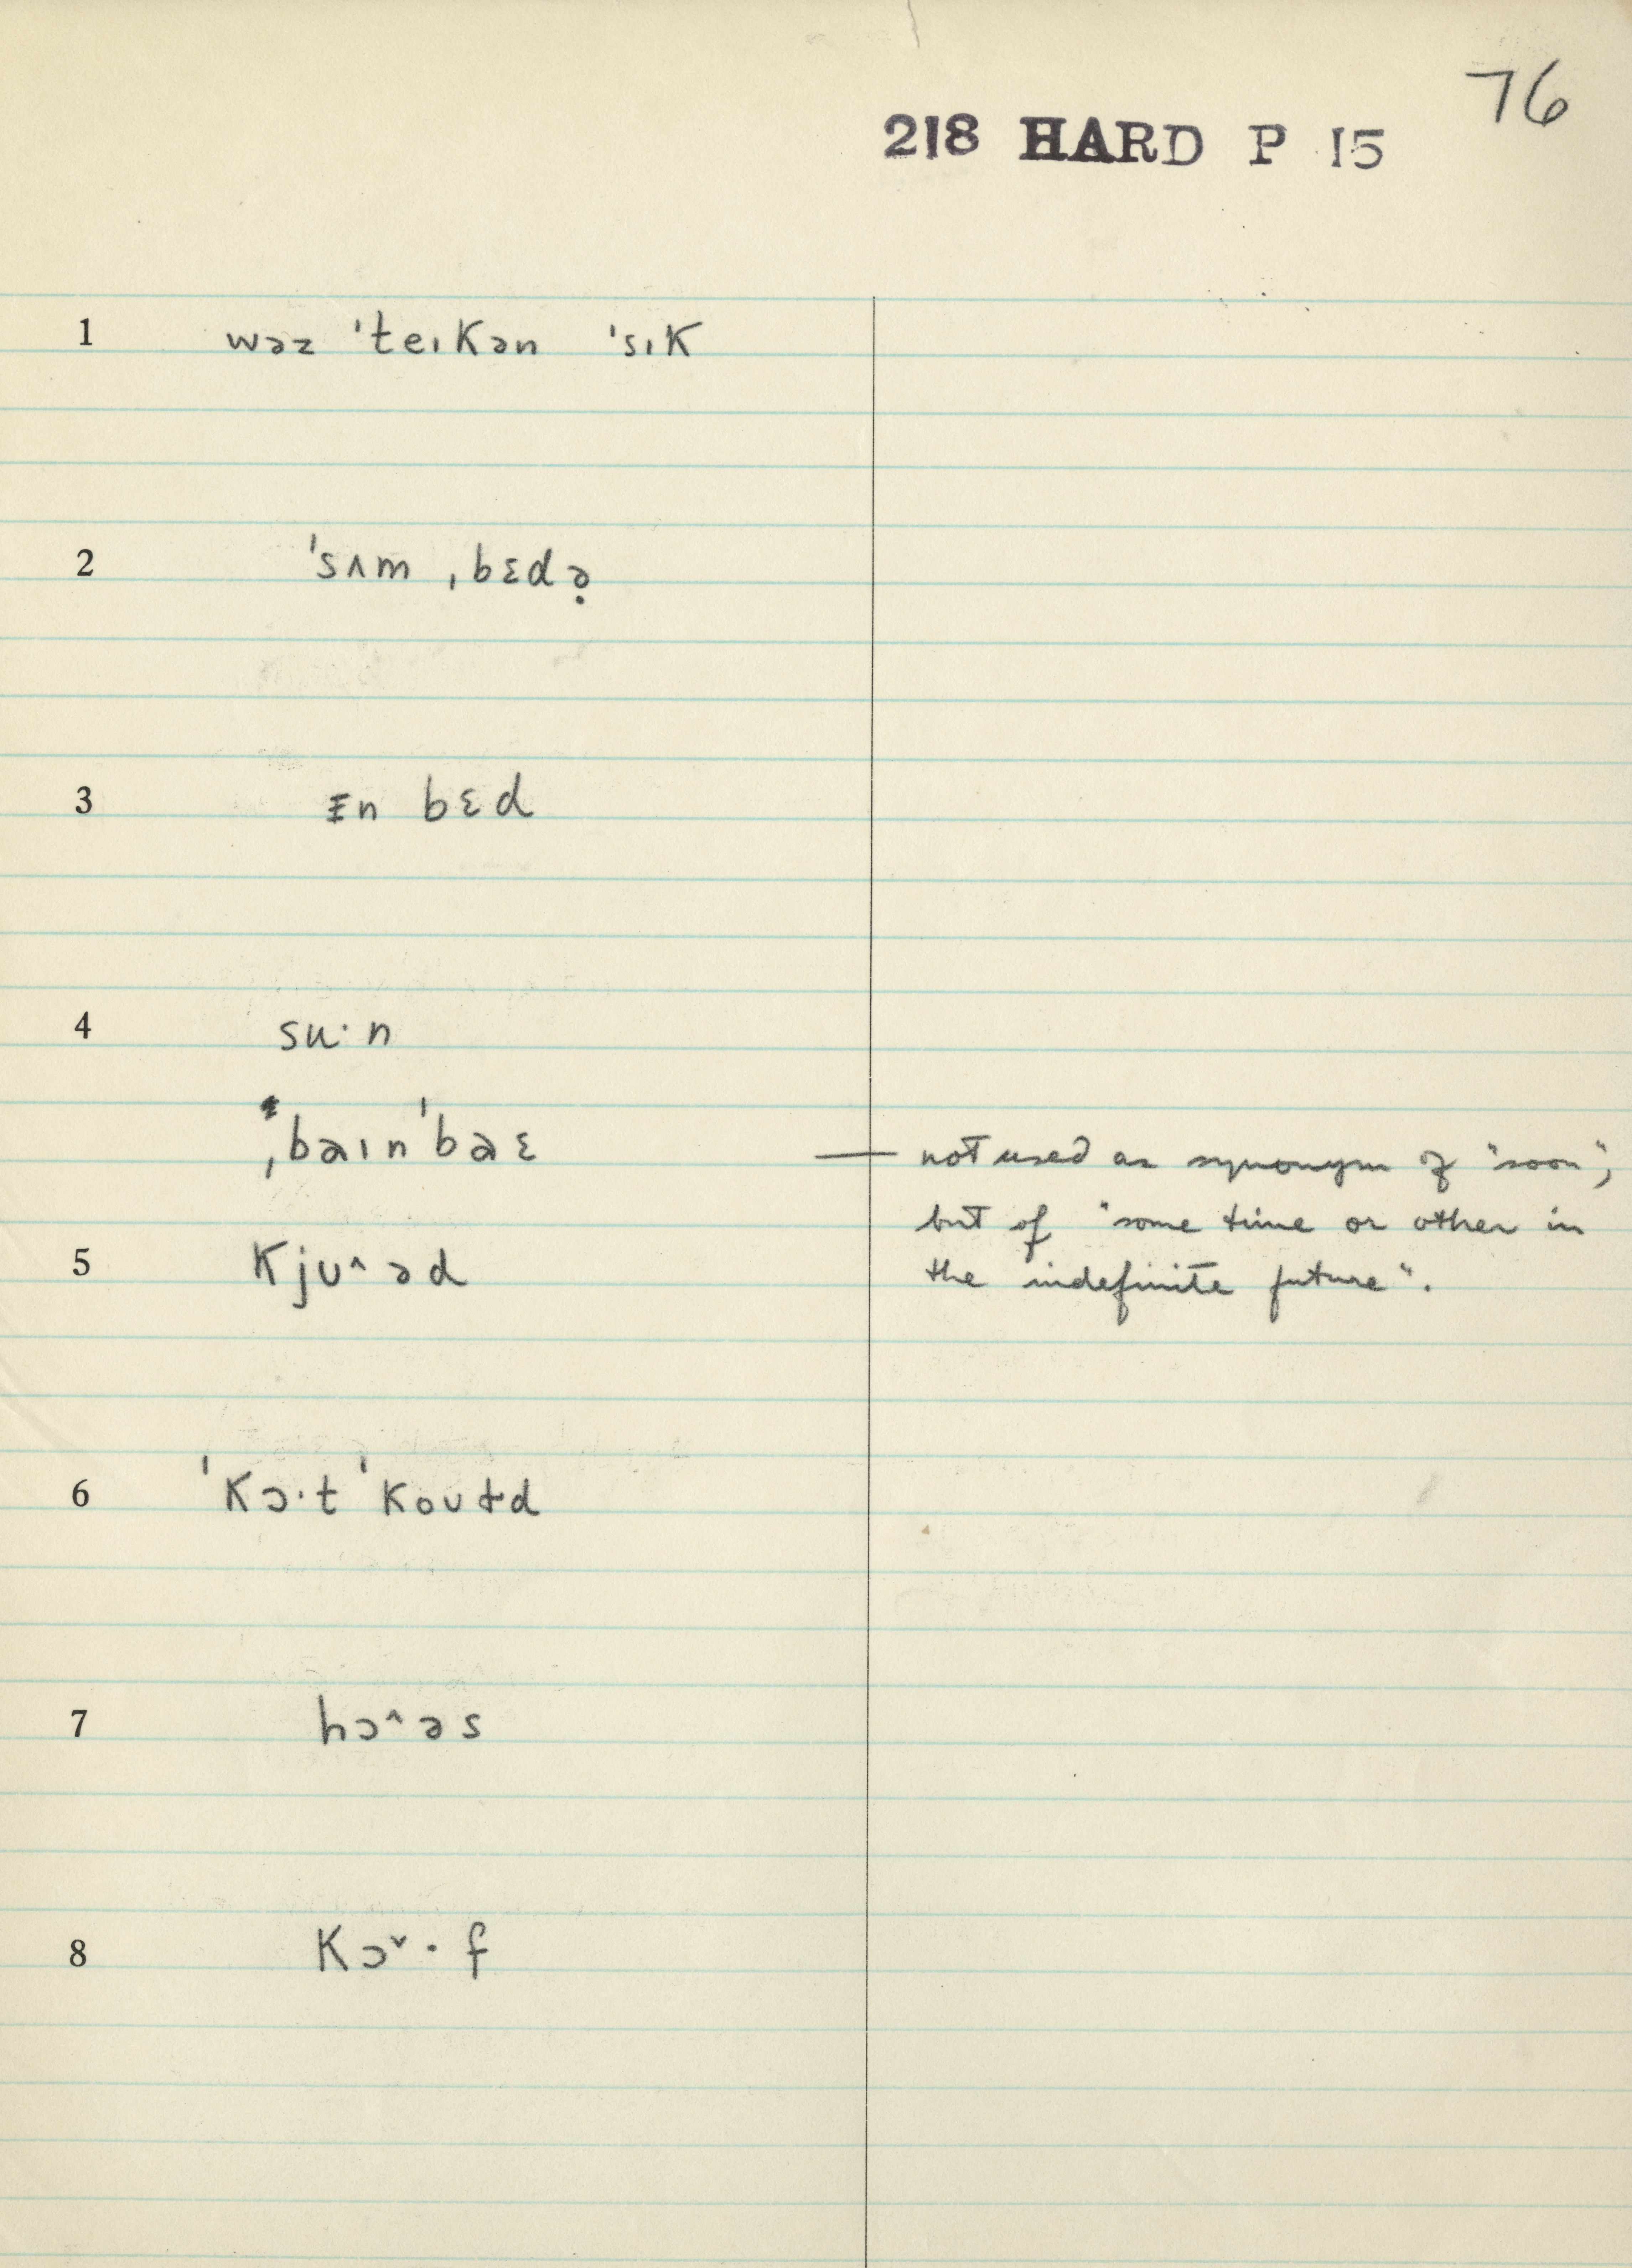 76
218 HARD P 15
1 wəz ˈteɪkən ˈsɪk
2 ˈsʌm ˌbɛdə̣
3 ɪ̵n bɛd
4 su·n
ˌbaɪnˈbaɛ — not used as synonym of "soon",
but of "some time or other in
5 kjʊ^əd the indefinite future".
6 ˈkɔ·t ˈkoʊɫd
7 hɔ^əs
8 kɔˇ·f